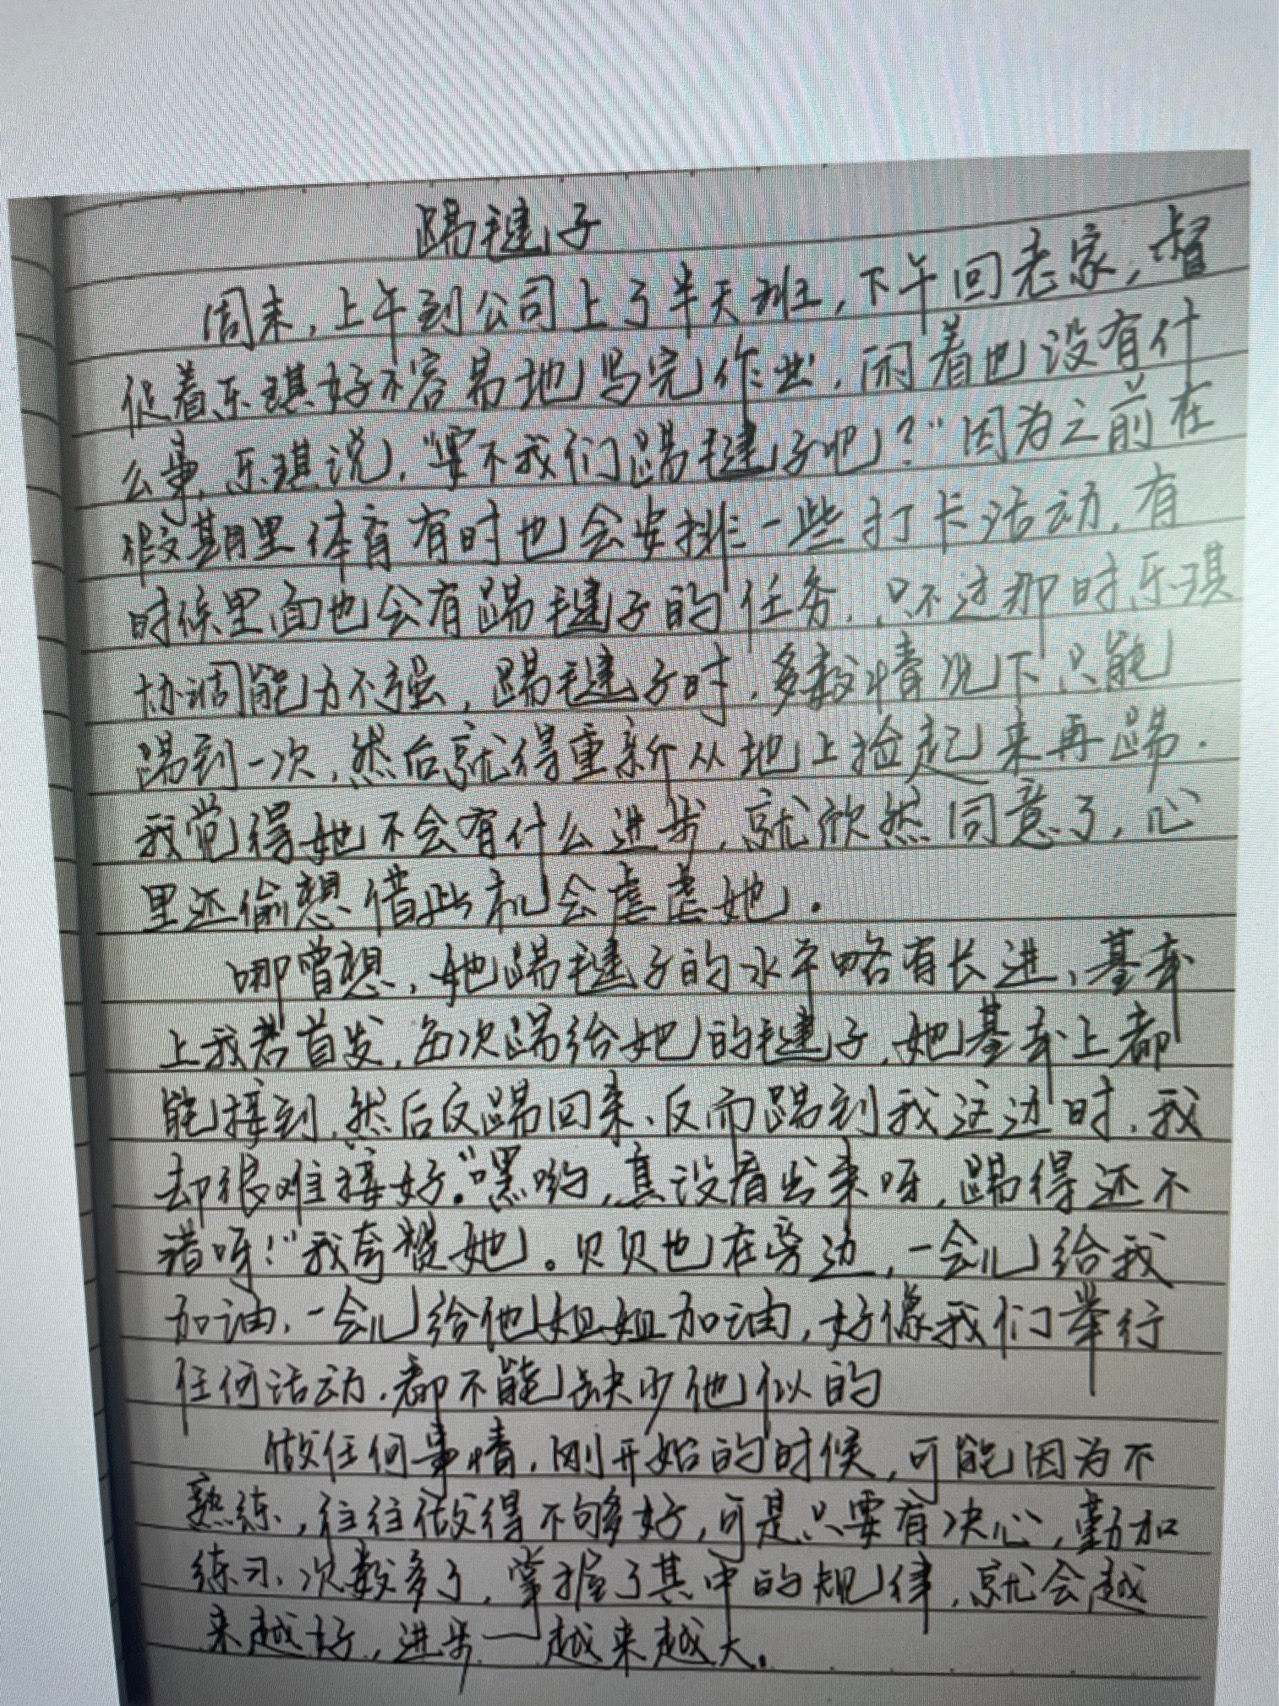 踢毽子
周末,上午到公司上了半天班,下午回老家,督
促着乐琪好不容易地写完作业,闲着也没有什
么事,乐琪说,"要不我们踢毽子吧?"因为之前在
假期里体育有时也会安排一些打卡活动,有
时候里面也会有踢毽子的任务,只不过那时乐琪
协调能力不强,踢毽子时,多数情况下只能
踢到一次,然后就得重新从地上捡起来再踢.
我觉得她不会有什么进步,就欣然同意了,心
里还偷想借此机会虐虐她。
哪曾想,她踢毽子的水平略有长进,基本
上我若首发,每次踢给她的毽子,她基本上都
能接到,然后反踢回来、反而踢到我这边时,我
却很难接好。"嘿哟,真没看出来呀,踢得还不
错呀!"我夸赞她。贝贝也在旁边,一会儿给我
加油,一会儿给他姐姐加油,好像我们举行
任何活动,都不能缺少他似的
做任何事情,刚开始的时候,可能因为不
熟练,往往做得不够多好,可是只要有决心,勤加
练习、次数多了,掌握了其中的规律,就会越
来越好,进步一越来越大。